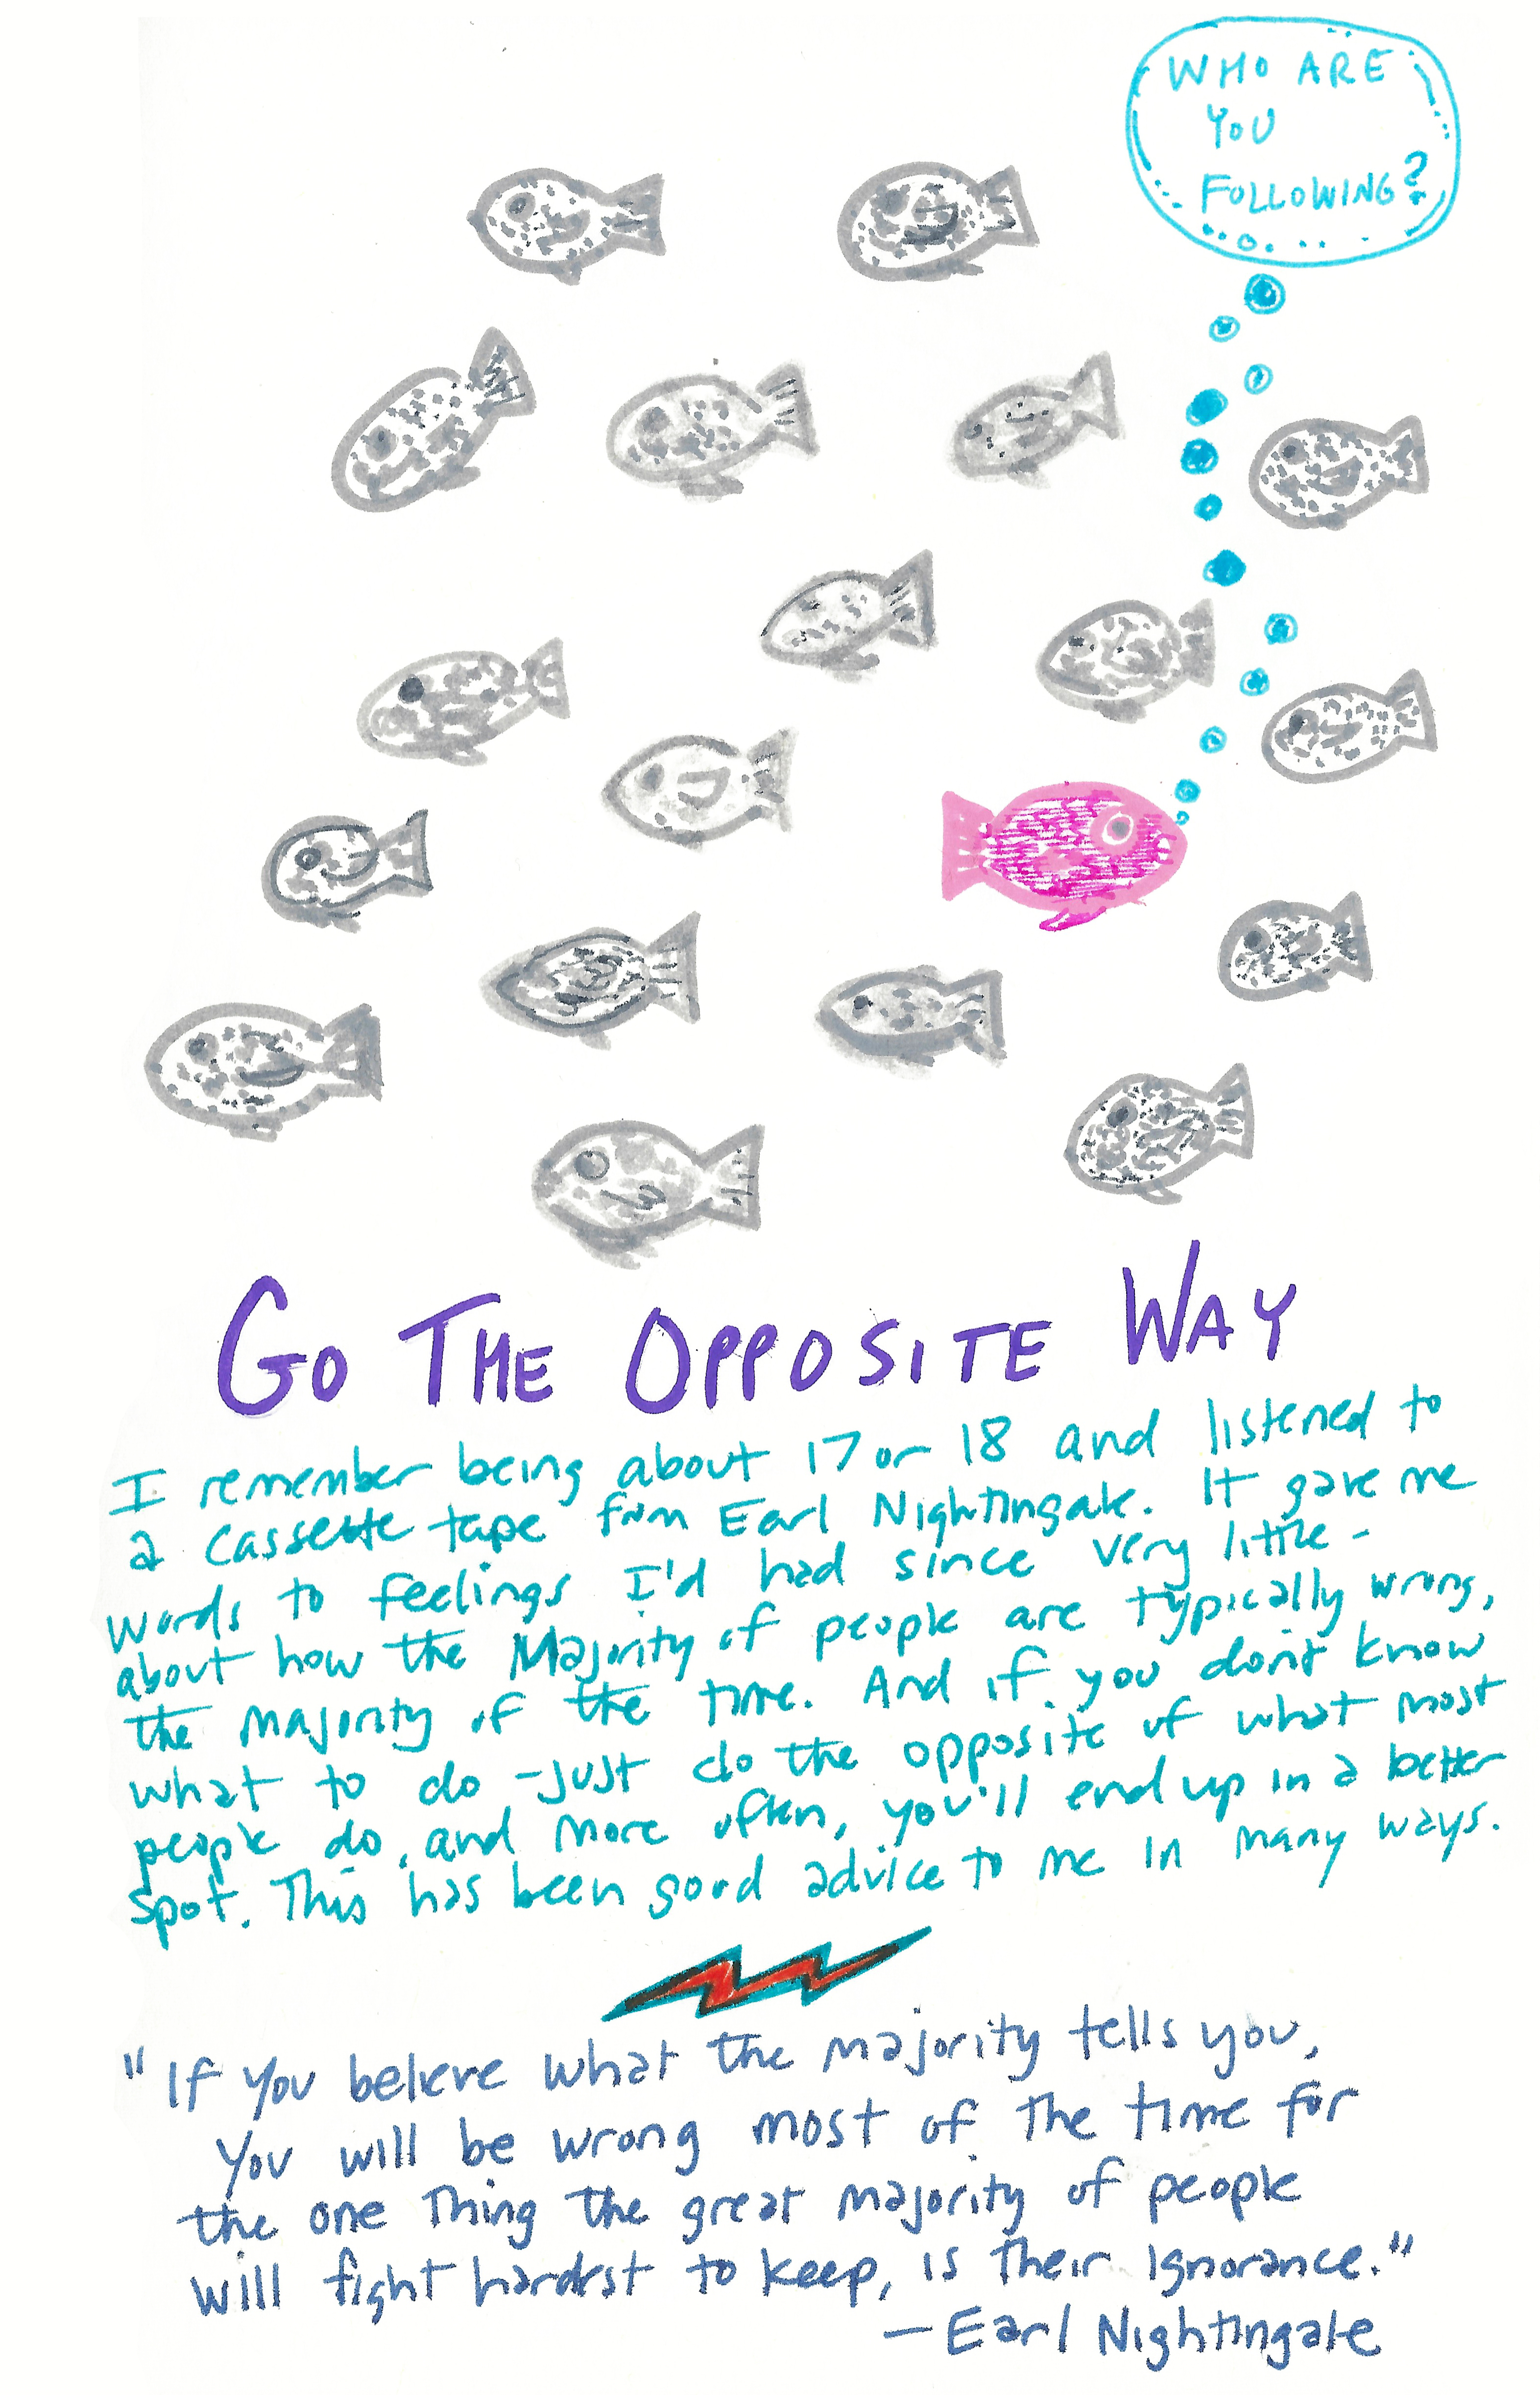 WHO ARE
YOU
FOLLOWING?
GO THE OPPOSITE WAY
I remember being about 17 or 18 and listened to
a cassette tape from Earl Nightingale. It gave me
words to feelings I'd had since very little -
about how the Majority of people are typically wrong,
the majority of the time. And if you don't know
what to do - just do the opposite of what most
people do, and more often, you'll end up in a better
spot. This has been good advice to me in many ways.
"If you believe what the majority tells you,
you will be wrong most of the time for
the one thing the great majority of people
will fight hardest to keep, is their ignorance."
- Earl Nightingale